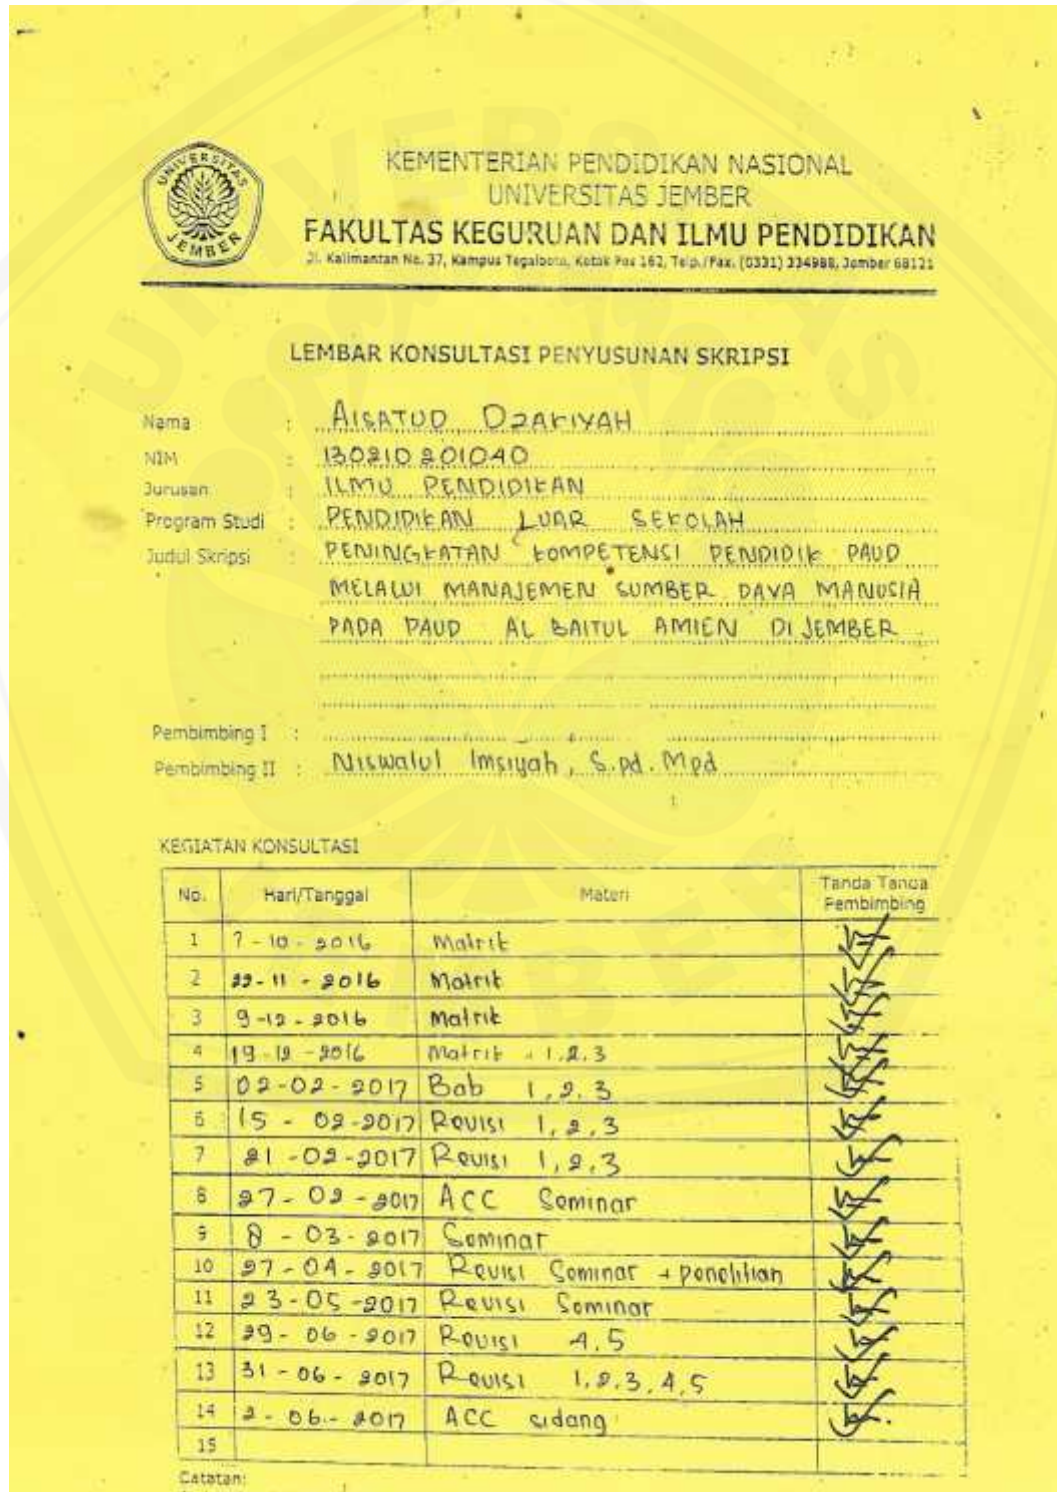 UNIVERSITAS
JEMBER
KEMENTERIAN PENDIDIKAN NASIONAL
UNIVERSITAS JEMBER
FAKULTAS KEGURUAN DAN ILMU PENDIDIKAN
Jl. Kalimantan No. 37, Kampus Tegalboto, Kotak Pos 162, Telp./Fax. (0331) 334988, Jember 68121
LEMBAR KONSULTASI PENYUSUNAN SKRIPSI
Nama : AISATUD DZAKIYAH
NIM : 130210201040
Jurusan : ILMU PENDIDIKAN
Program Studi : PENDIDIKAN LUAR SEKOLAH
Judul Skripsi : PENINGKATAN KOMPETENSI PENDIDIK PAUD
MELALUI MANAJEMEN SUMBER DAYA MANUSIA
PADA PAUD AL BAITUL AMIEN DI JEMBER
Pembimbing I :
Pembimbing II : Niswatul Imsiyah, S.pd. Mpd
KEGIATAN KONSULTASI
No. Hari/Tanggal Materi Tanda Tanda
Pembimbing
1 7 - 10 - 2016 Matrik
2 22 - 11 - 2016 Matrik
3 9 -12 - 2016 Matrik
4 19 - 12 - 2016 Matrik + 1.2.3
5 02 -02 - 2017 Bab 1, 2, 3
6 15 - 02 -2017 Revisi 1, 2, 3
7 21 -02 -2017 Revisi 1, 2, 3
8 27 - 02 - 2017 ACC Seminar
9 8 - 03 - 2017 Seminar
10 27 - 04 - 2017 Revisi Seminar + penelitian
11 23 - 05 -2017 Revisi Seminar
12 29 - 06 - 2017 Revisi 4,5
13 31 - 06 - 2017 Revisi 1,2,3,4,5
14 2 - 06 - 2017 ACC sidang
15
Catatan: